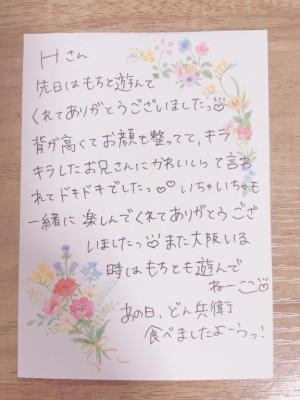 Hさん
先日はもちと遊んで
くれてありがとうございましたっ
背が高くてお顔も整ってて、キラ
キラしたお兄さんにかわいいって言わ
れてドキドキでしたっ♡♡ いちゃいちゃも
一緒に楽しんでくれてありがとうござ
いましたっ また大阪いる
時はもちとも遊んで
ねー
あの日、どん兵衛
食べましたよーうっ!